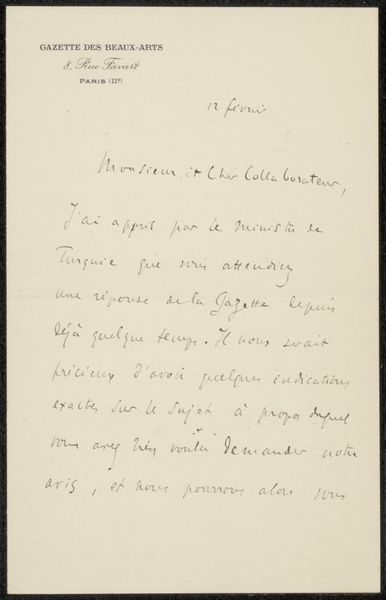 GAZETTE DES BEAUX-ARTS
8, Rue Favart
PARIS (IIe)
12 février
Monsieur et Cher Collaborateur,
J'ai appris par le ministre de
Turquie que vous attendiez
une réponse de la Gazette depuis
déjà quelque temps. Il nous serait
précieux d'avoir quelques indications
exactes sur le sujet à propos duquel
vous avez bien voulu demander notre
avis, et nous pourrons alors vous